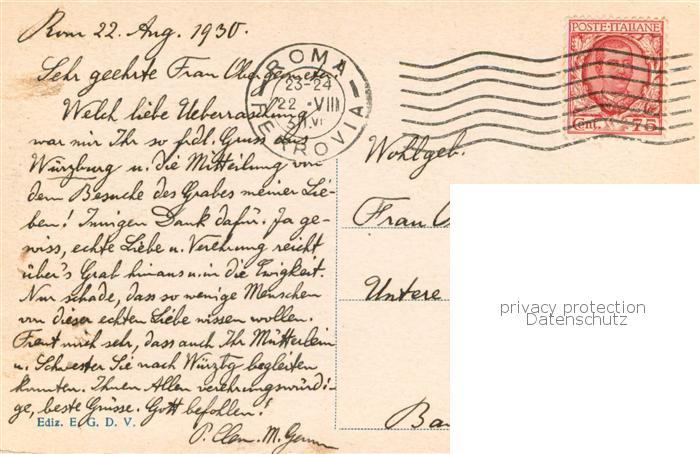 Rom 22. Aug. 1930.
Sehr geehrte Frau
Welch liebe Ueberraschung
war mir Ihr so frdl. Gruss aus
Würzburg u. die Mitteilung von
dem Besuche des Grabes meiner Lie-
ben! Innigen Dank dafür. Ja ge-
wiss, echte Liebe u. Verehrung reicht
über's Grab hinaus u. in die Ewigkeit.
Nur schade, dass so wenige Menschen
von dieser echten Liebe wissen wollen.
Freut mich sehr, dass auch Ihr Mütterlein
u. Schwester Sie nach Würzbg begleiten
konnten. Ihnen Allen verehrungswürdi-
ge, beste Grüsse. Gott befohlen!
P. Clem. M.
Ediz. E. G. D. V.
ROMA
23-24
22 · VIII
FERROVIA
POSTE·ITALIANE
Cent. 75
Wohlgeb.
Frau
Untere
Ba
privacy protection
Datenschutz